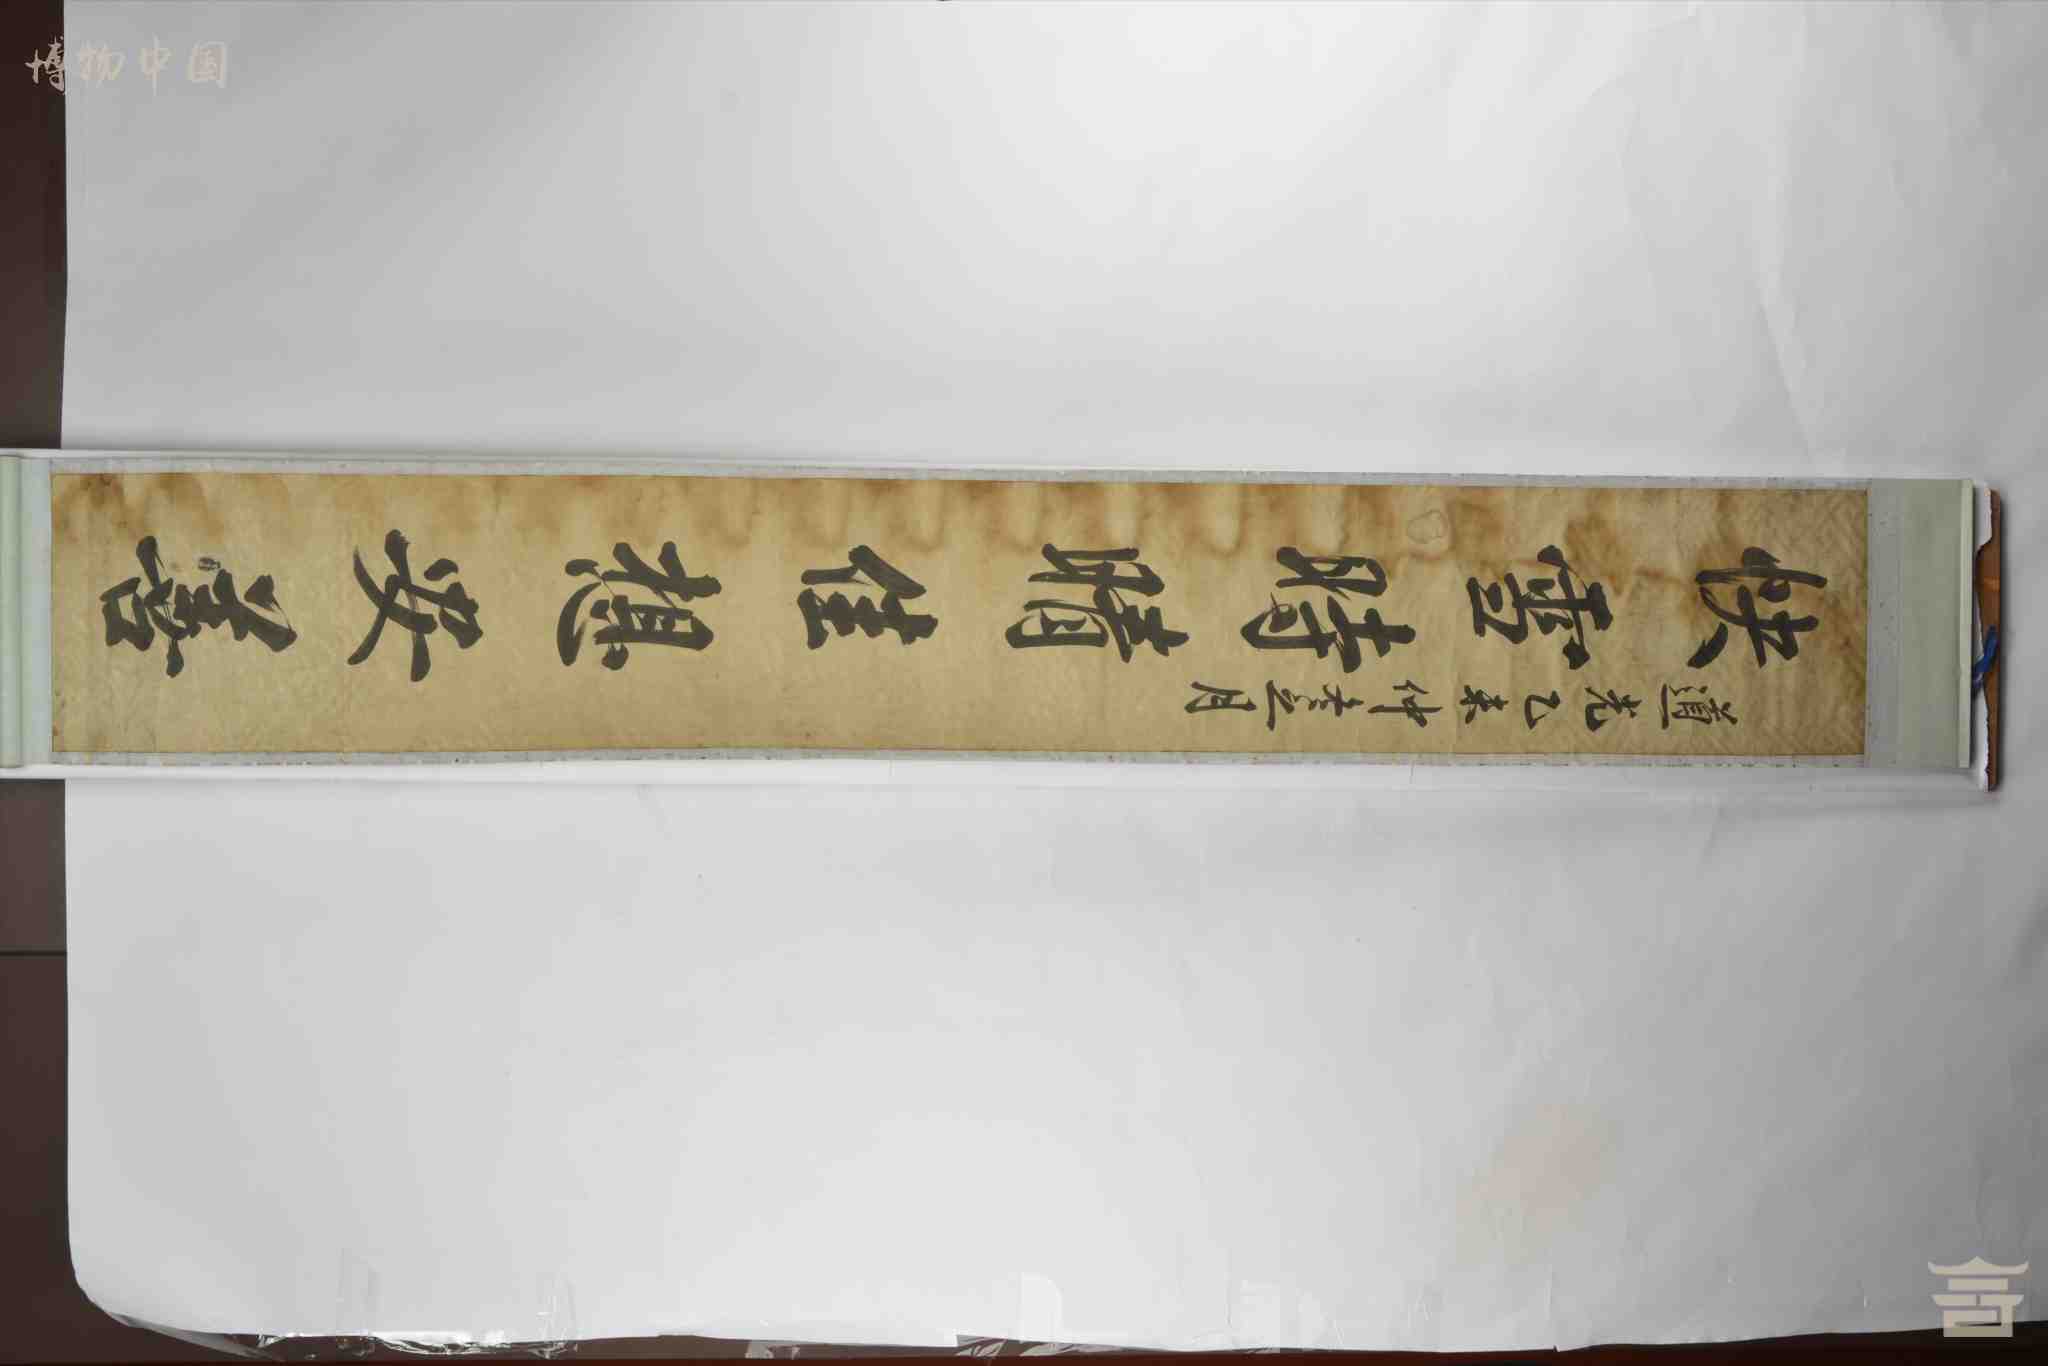 博物中国
快雪時晴佳想安善
道光乙未仲春之月